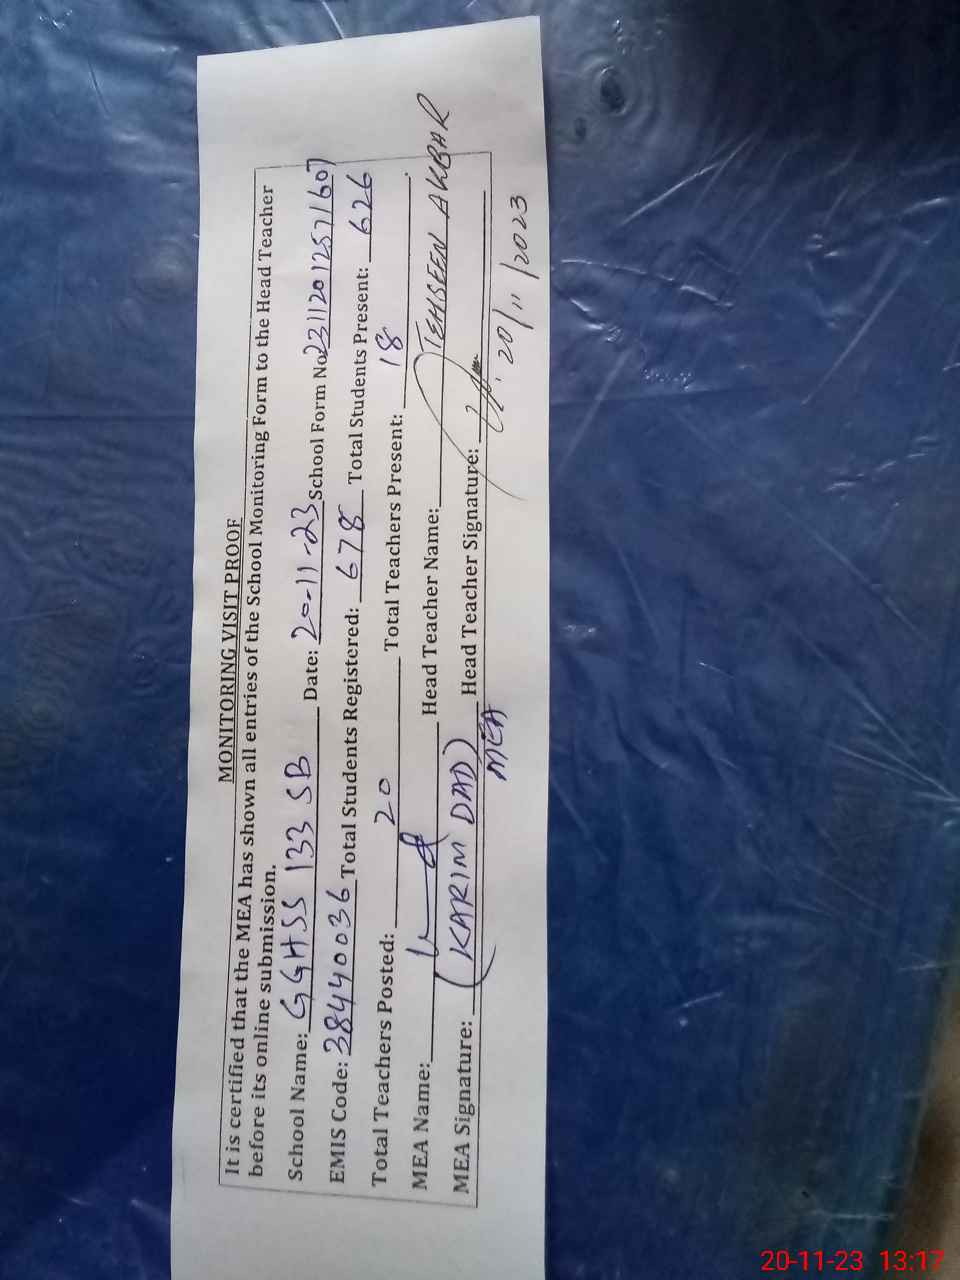 MONITORING VISIT PROOF
It is certified that the MEA has shown all entries of the School Monitoring Form to the Head Teacher
before its online submission.
School Name: GGHSS 133 SB Date: 20-11-23 School Form No: 23112012571607
EMIS Code: 38440036 Total Students Registered: 678 Total Students Present: 626
Total Teachers Posted: 20 Total Teachers Present: 18
MEA Name: Head Teacher Name: TEHSEEN AKBAR
MEA Signature: (KARIM DAD) Head Teacher Signature:
MEA 20/11/2023
20-11-23 13:17